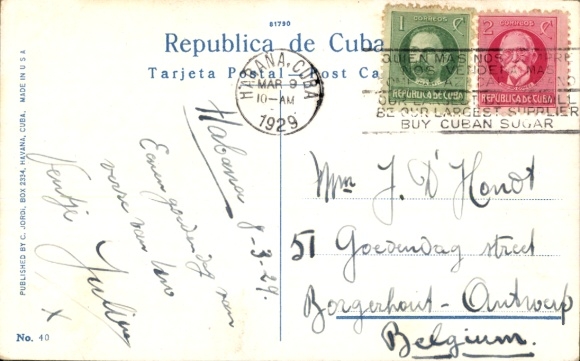 81790
Republica de Cuba
Tarjeta Postal — Post Ca
HABANA, CUBA
MAR 9
10-AM
1929
1¢ CORREOS
REPUBLICA DE CUBA
2¢ CORREOS
REPUBLICA DE CUBA
QUIEN MAS NOS
BE OUR LARGEST SUPPLIER
BUY CUBAN SUGAR
Habana 8-3-29.
Eenen goedendag van
verre van
Ventje
Julien
X
Mm J. D'Hondt
51 Goedendag street
Borgerhout-Antwerp
Belgium.
PUBLISHED BY C. JORDI, BOX 2334, HAVANA, CUBA. MADE IN U S A
No. 40